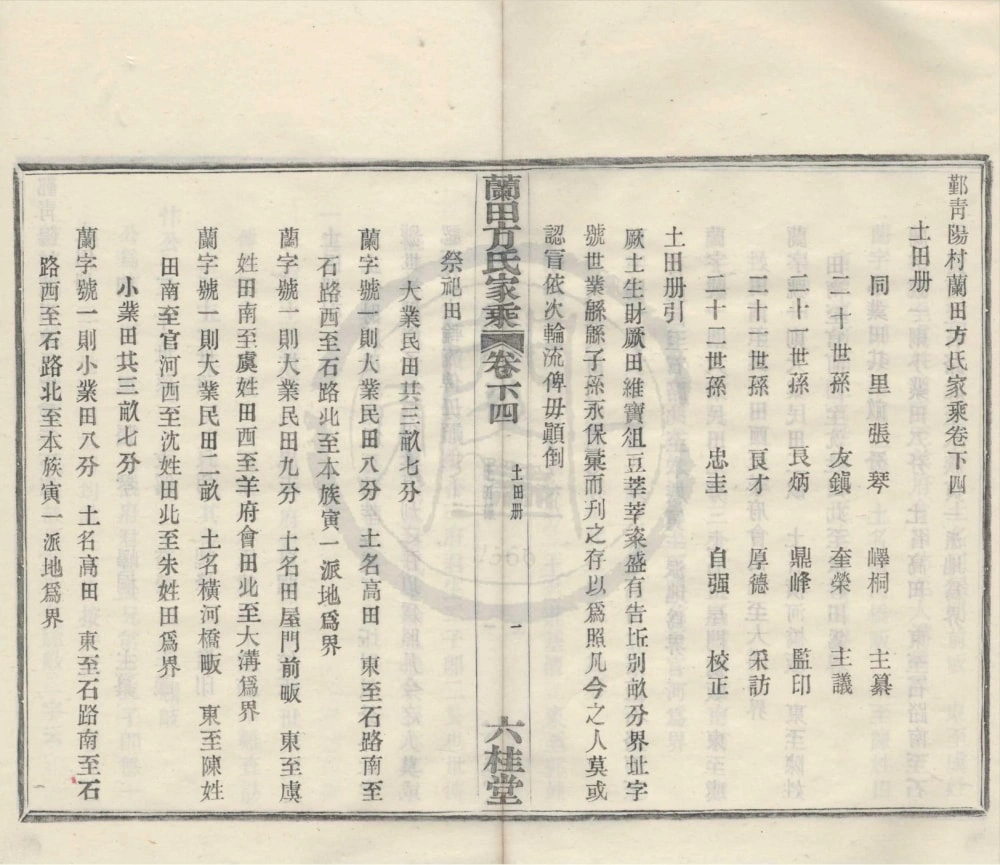 鄞青陽村蘭田方氏家乘卷下四
土田册
同里張琴 嶧桐 主纂
二十世孫 友鎭 奎榮 主議
二十一世孫 長炳 鼎峰 監印
二十世孫 良才 厚德 采訪
二十二世孫 忠圭 自强 校正
土田册引
厥土生財厥田維寶俎豆莘莘粢盛有告坵别畝分界址字
號世業緜緜子孫永保彙而刋之存以爲照凡今之人莫或
認冒依次輪流俾毋顚倒
祭祀田
大業民田共三畝七分
蘭字號一則大業民田八分 土名高田 東至石路南至
石路西至石路北至本族寅一派地爲界
蘭字號一則大業民田九分 土名田屋門前畈 東至虞
姓田南至虞姓田西至羊府會田北至大溝爲界
蘭字號一則大業民田二畝 土名橫河橋畈 東至陳姓
田南至官河西至沈姓田北至朱姓田爲界
小業田共三畝七分
蘭字號一則小業田八分 土名高田 東至石路南至石
路西至石路北至本族寅一派地爲界
蘭田方氏家乘 卷下四 土田册 一 六桂堂